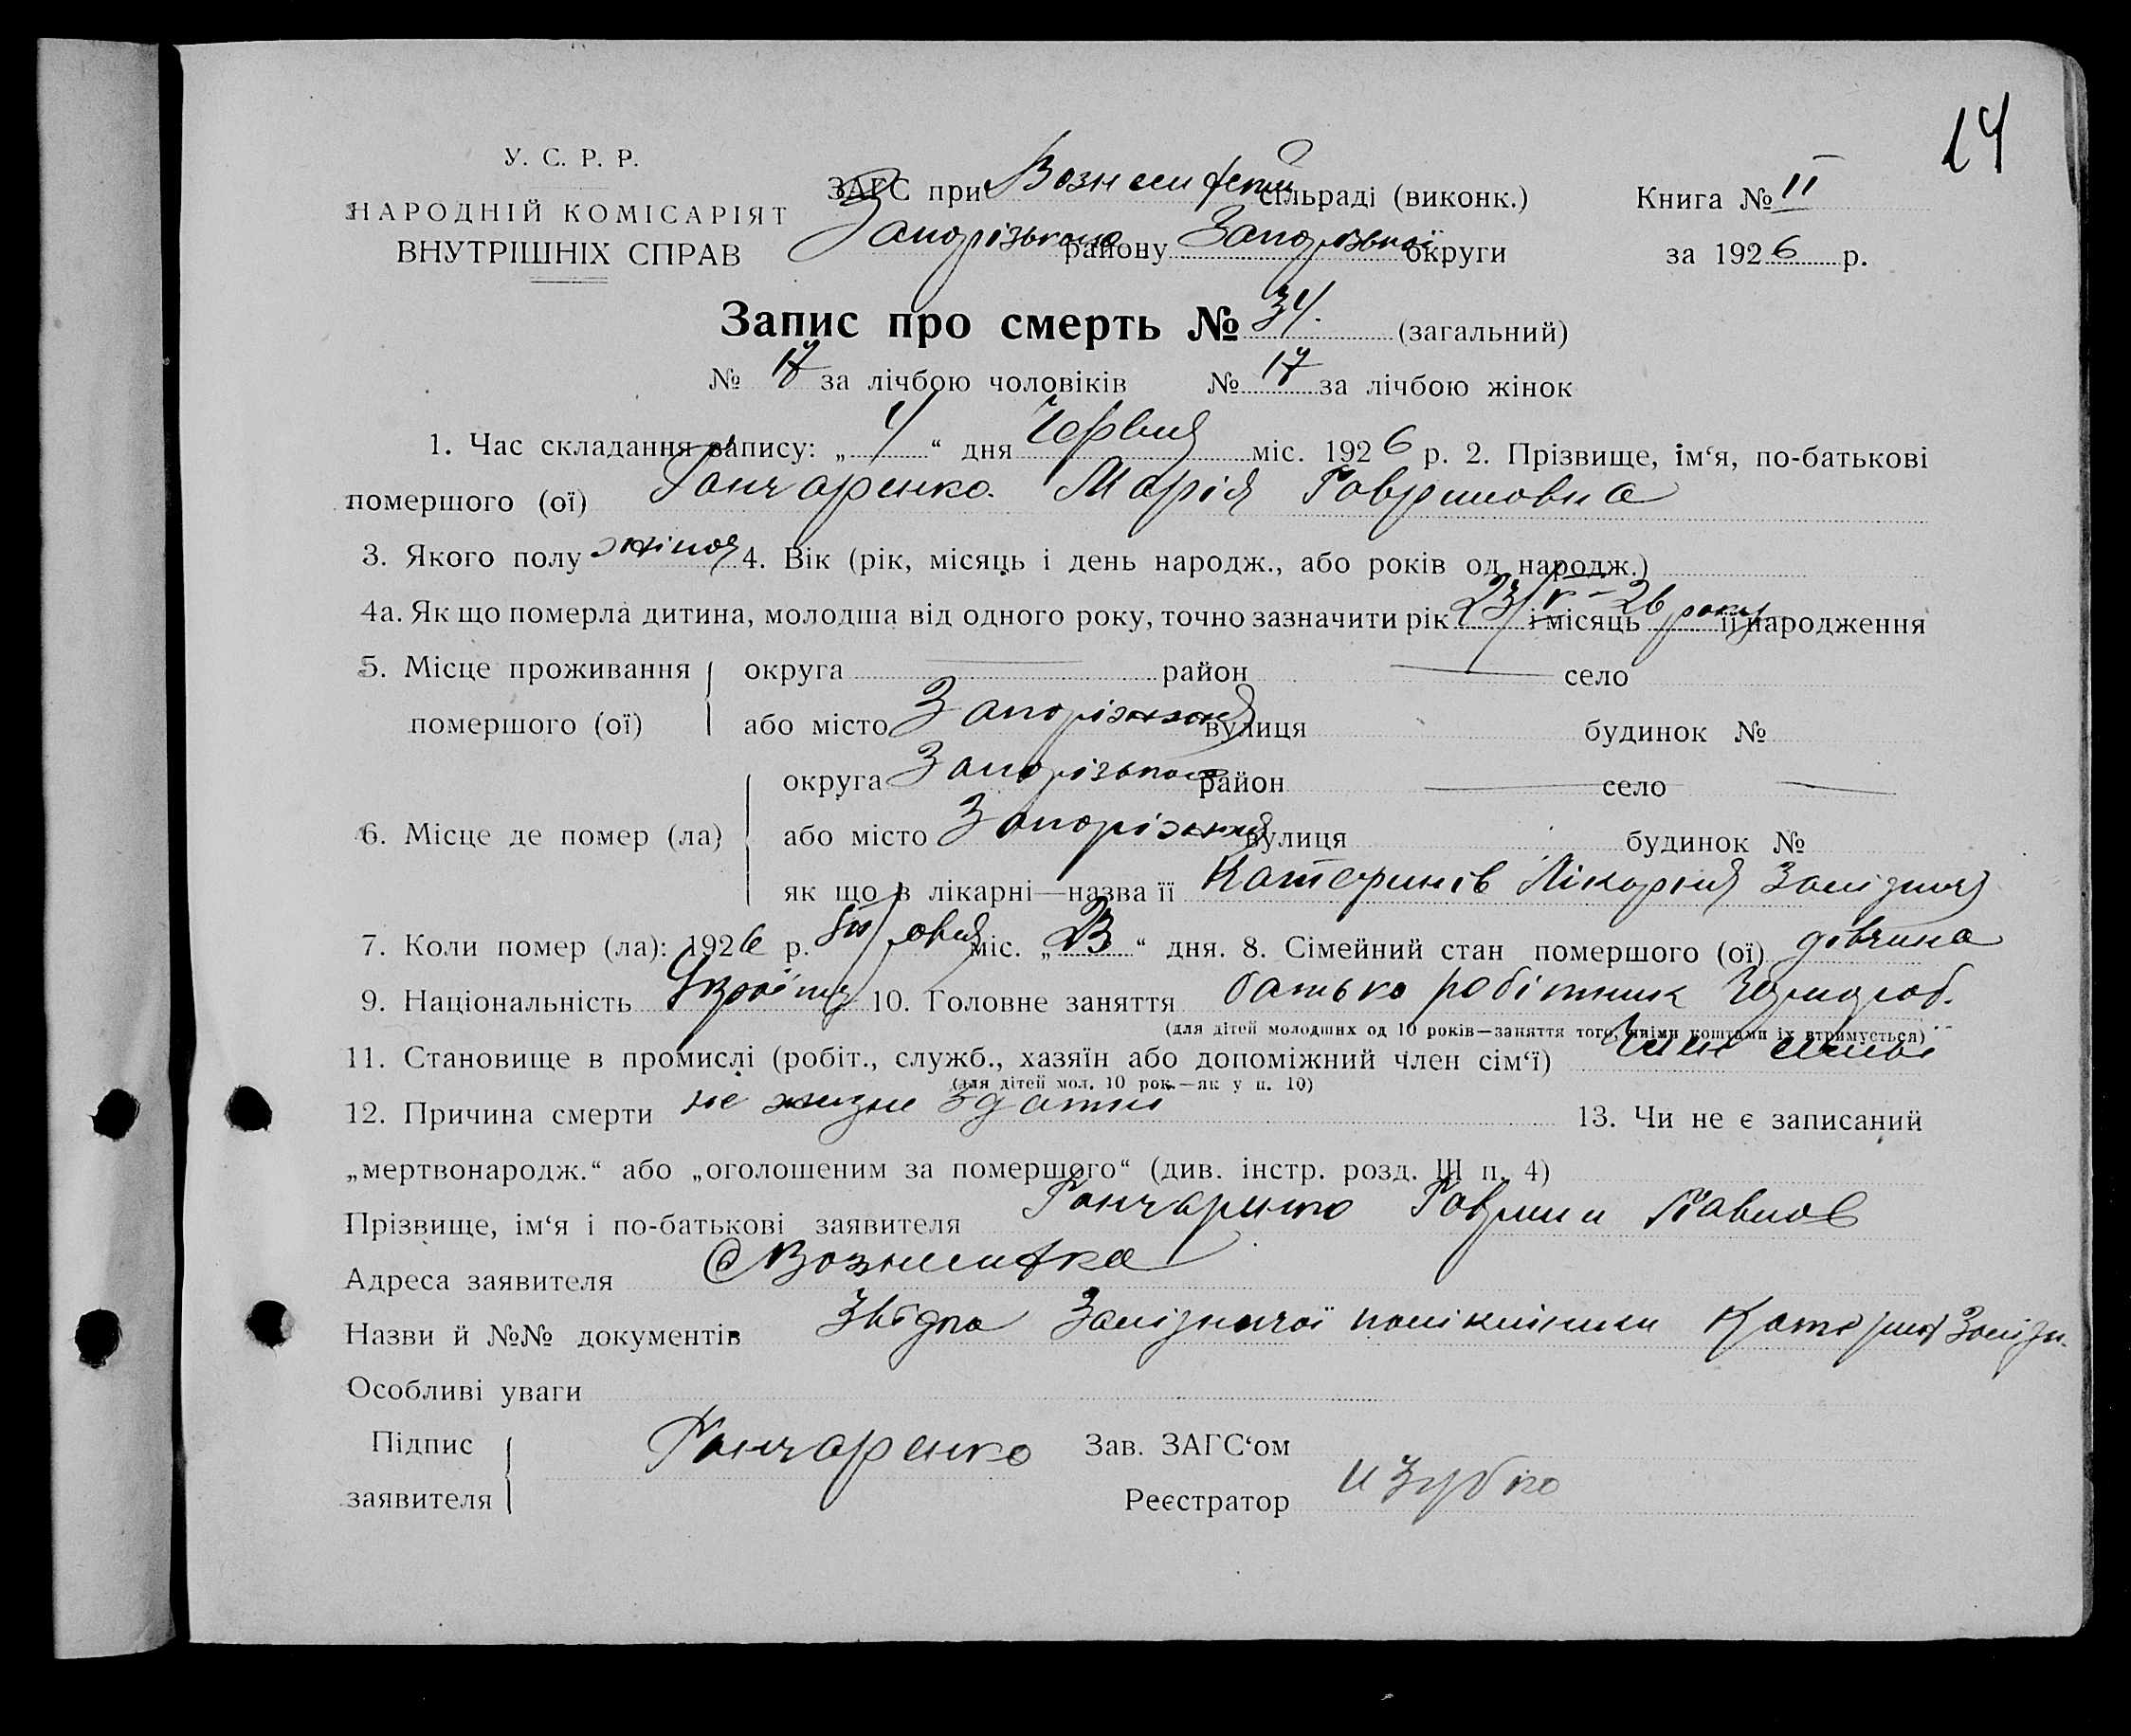 14
У. С. Р. Р.
НАРОДНІЙ КОМІСАРІЯТ
ВНУТРІШНІХ СПРАВ
ЗАГС при сільраді (виконк.)
Запорізького району Запорізької округи
Книга № II
за 1926 р.
Запис про смерть № 34. (загальний)
№ 17 за лічбою чоловіків № 17 за лічбою жінок
1. Час складання запису: „ 4 “ дня Червня міс. 1926 р. 2. Прізвище, ім‘я, по-батькові
помершого (ої) Гончаренко Марія Гавриловна
3. Якого полу жіноч 4. Вік (рік, місяць і день народж., або років од народж.)
4а. Як що померла дитина, молодша від одного року, точно зазначити рік 23/V – 26 року і місяць її народження
5. Місце проживання округа район село
помершого (ої) або місто Запоріжжя вулиця будинок №
округа Запорізька район село
6. Місце де помер (ла) або місто Запоріжжя вулиця будинок №
як що в лікарні—назва її Катеринів Лікарня Залізнич
7. Коли помер (ла): 1926 р. міс. „ 23 “ дня. 8. Сімейний стан помершого (ої) дівчина
9. Національність Україн 10. Головне заняття батько робітник
(для дітей молодших од 10 років—заняття того, чиїми коштами їх втримується)
11. Становище в промислі (робіт., служб., хазяїн або допоміжний член сім‘ї) член
(для дітей мол. 10 рок.—як у п. 10)
12. Причина смерти не жизне здатні 13. Чи не є записаний
„мертвонародж.“ або „оголошеним за помершого“ (див. інстр. розд. III п. 4)
Прізвище, ім‘я і по-батькові заявителя Гончаренко Гаврили Павлов
Адреса заявителя с Вознесенка
Назви й №№ документів Звідка Залізничої поліклініки Катерин Залізн.
Особливі уваги
Підпис Гончаренко Зав. ЗАГС‘ом
заявителя Реєстратор И Зубко